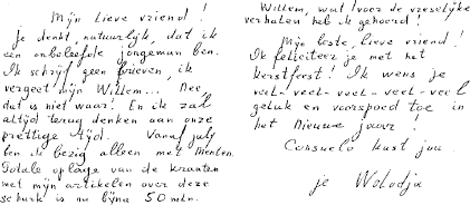 Mijn lieve vriend!
je denkt natuurlijk, dat ik
een onbeleefde jongeman ben.
Ik schrijf geen brieven, ik
vergeet mijn Willem... Nee,
dat is niet waar! En ik zal
altijd terug denken aan onze
prettige tijd. Vanaf july
ben ik bezig alleen met Menten.
Totale oplage van de kranten
met mijn artikelen over deze
schurk is nu bijna 50 mln.
Willem, wat voor de vreselijke
verhalen heb ik gehoord!
Mijn beste, lieve vriend!
Ik feliciteer je met het
kerstfeest! Ik wens je
veel-veel-veel-veel-veel
geluk en voorspoed toe in
het Nieuwe jaar!
Consuelo kust jou.
je Wolodja